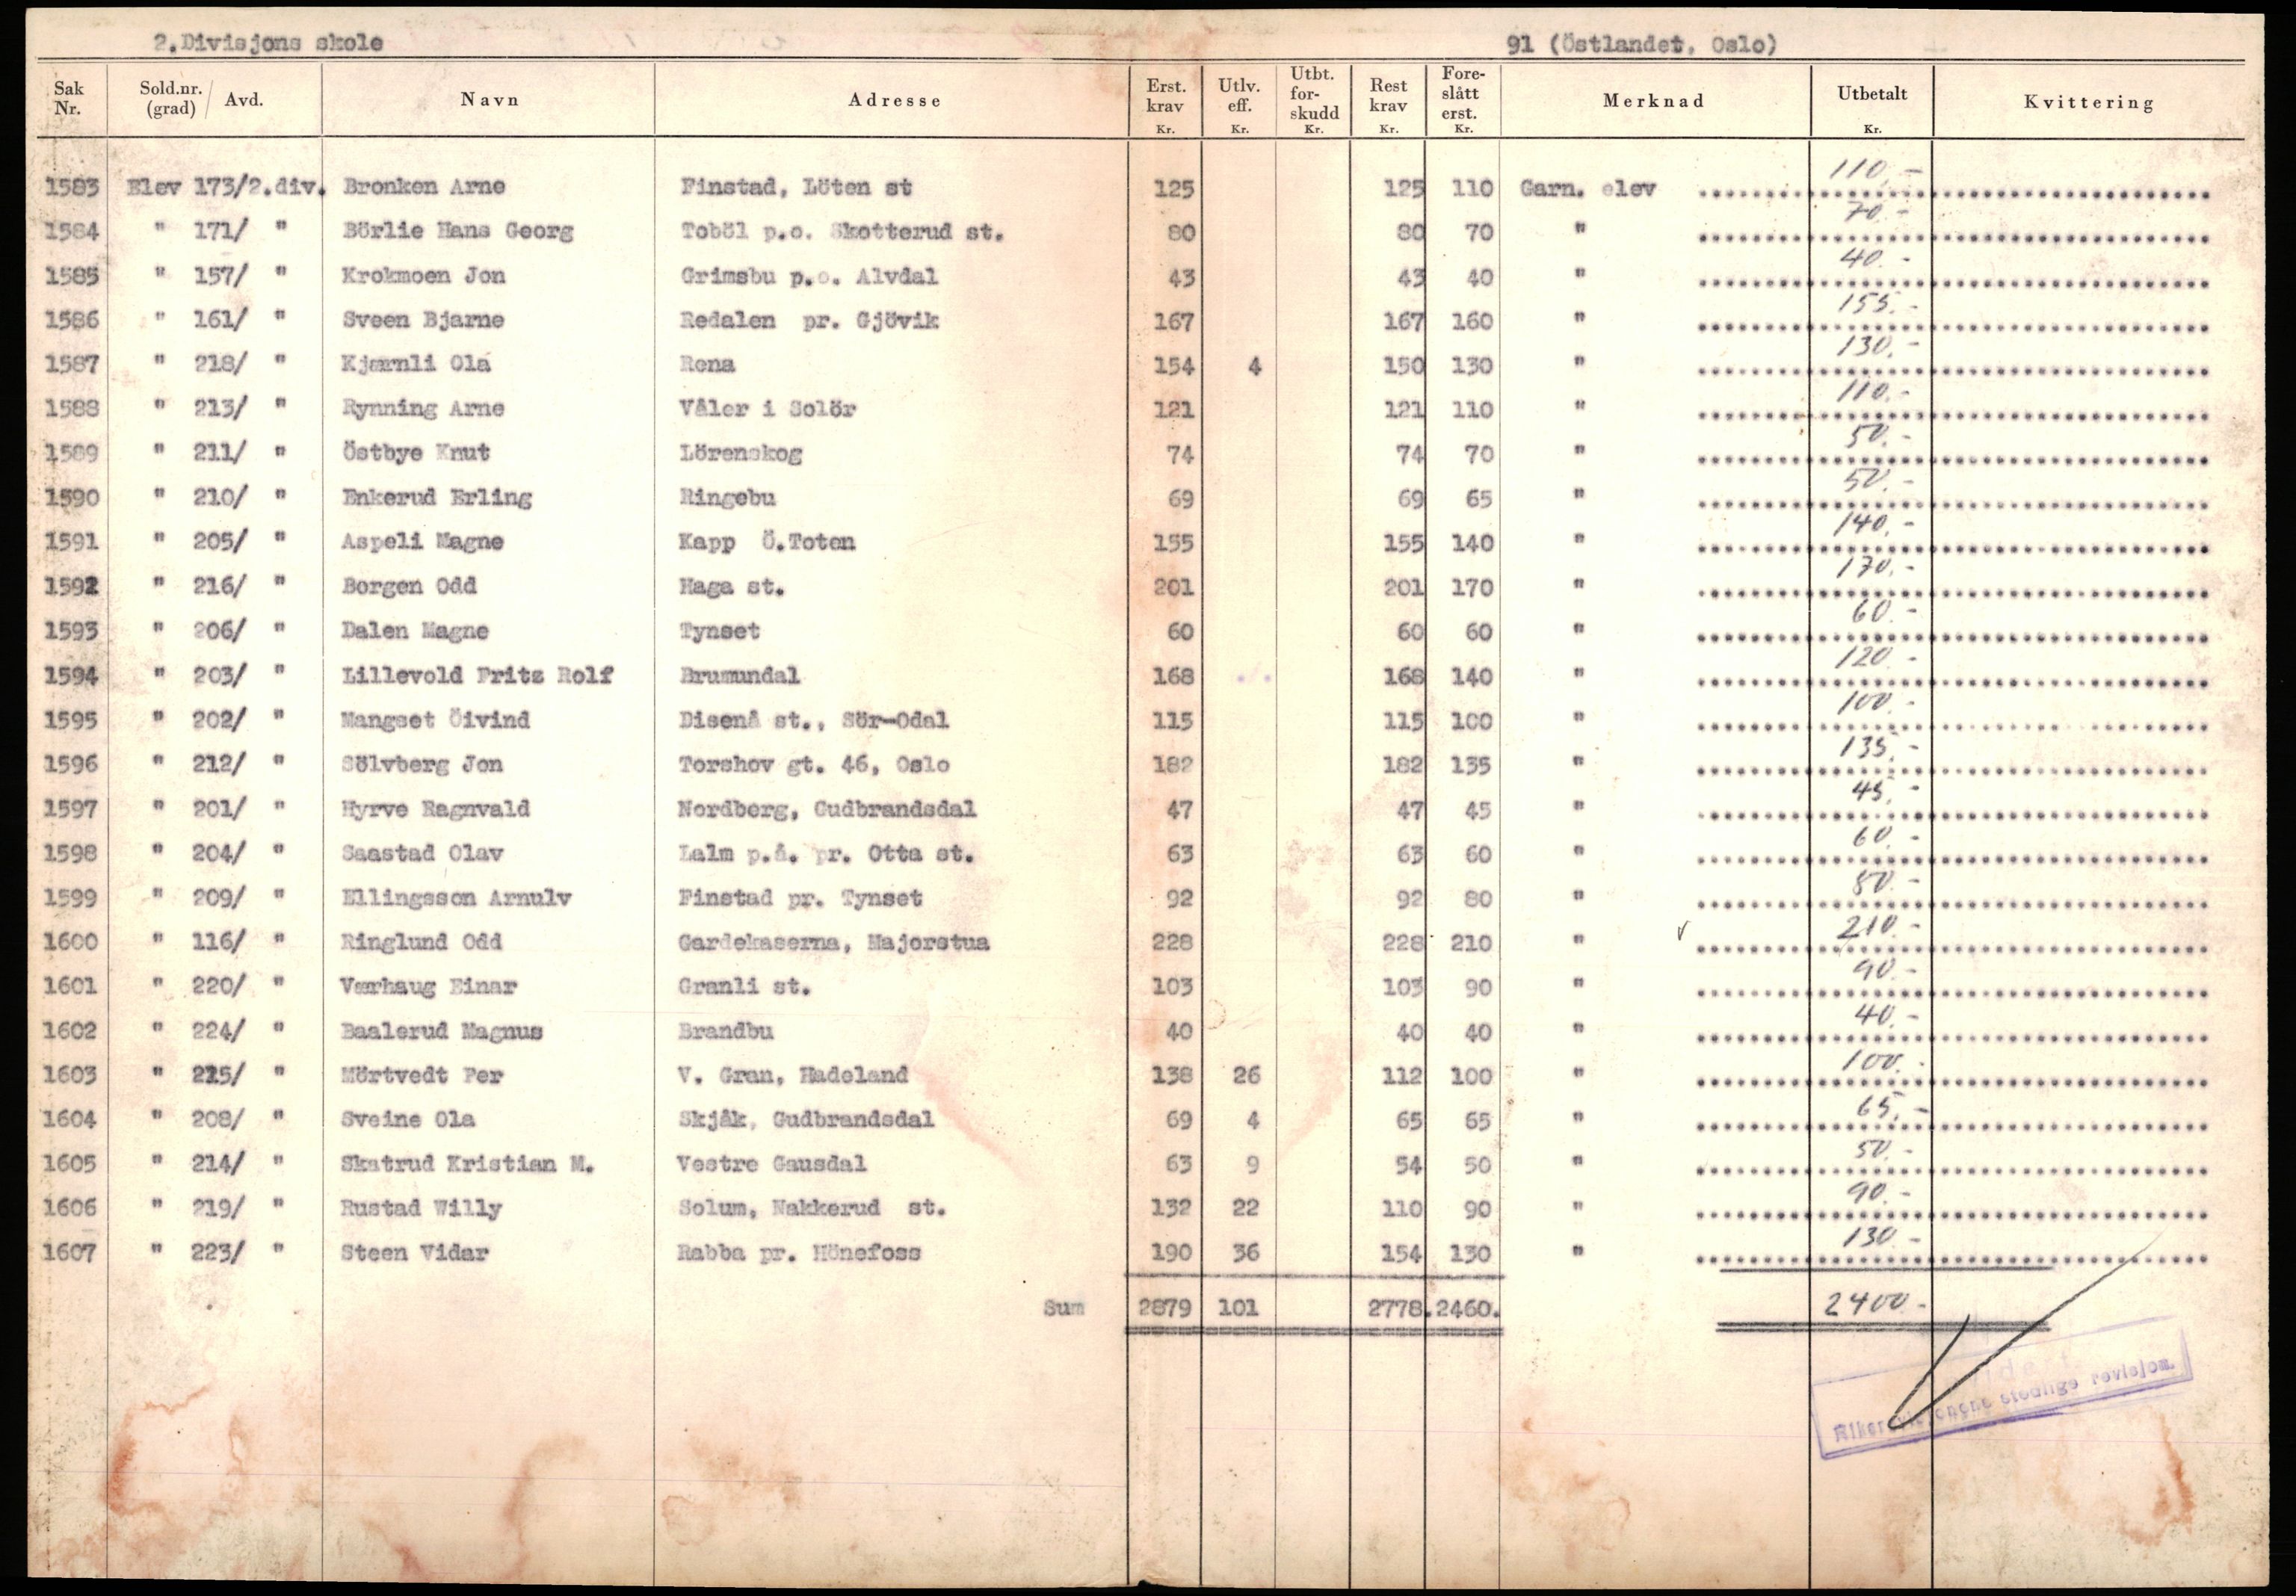 2.Divisjons skole 91 (Östlandet, Oslo)
Sak Nr. Sold.nr. (grad) / Avd. Navn Adresse Erst. krav Kr. Utlv. eff. Kr. Utbt. for- skudd Kr. Rest krav Kr. Fore- slått erst. Kr. Merknad Utbetalt Kr. Kvittering
1583 Elev 173/2.div. Bronken Arne Finstad, Löten st 125 125 110 Garn. elev 110.-
1584 " 171/ " Börlie Hans Georg Toböl p.o. Skotterud st. 80 80 70 " 70.-
1585 " 157/ " Krokmoen Jon Grimsbu p.o. Alvdal 43 43 40 " 40.-
1586 " 161/ " Sveen Bjarne Redalen pr. Gjövik 167 167 160 " 155.-
1587 " 218/ " Kjærnli Ola Rena 154 4 150 130 " 130.-
1588 " 213/ " Rynning Arne Våler i Solör 121 121 110 " 110.-
1589 " 211/ " Östbye Knut Lörenskog 74 74 70 " 50.-
1590 " 210/ " Enkerud Erling Ringebu 69 69 65 " 50.-
1591 " 205/ " Aspeli Magne Kapp Ö.Toten 155 155 140 " 140.-
1592 " 216/ " Borgen Odd Haga st. 201 201 170 " 170.-
1593 " 206/ " Dalen Magne Tynset 60 60 60 " 60.-
1594 " 203/ " Lillevold Fritz Rolf Brumundal 168 168 140 " 120.-
1595 " 202/ " Mangset Öivind Disenå st., Sör-Odal 115 115 100 " 100.-
1596 " 212/ " Sölvberg Jon Torshov gt. 46, Oslo 182 182 135 " 135.-
1597 " 201/ " Hyrve Ragnvald Nordberg, Gudbrandsdal 47 47 45 " 45.-
1598 " 204/ " Saastad Olav Lalm p.å. pr. Otta st. 63 63 60 " 60.-
1599 " 209/ " Ellingsson Arnulv Finstad pr. Tynset 92 92 80 " 80.-
1600 " 116/ " Ringlund Odd Gardekaserna, Majorstua 228 228 210 " 210.-
1601 " 220/ " Værhaug Einar Granli st. 103 103 90 " 90.-
1602 " 224/ " Baalerud Magnus Brandbu 40 40 40 " 40.-
1603 " 215/ " Mörtvedt Per V. Gran, Hadeland 138 26 112 100 " 100.-
1604 " 208/ " Sveine Ola Skjåk, Gudbrandsdal 69 4 65 65 " 65.-
1605 " 214/ " Skatrud Kristian M. Vestre Gausdal 63 9 54 50 " 50.-
1606 " 219/ " Rustad Willy Solum, Nakkerud st. 132 22 110 90 " 90.-
1607 " 223/ " Steen Vidar Rabba pr. Hönefoss 190 36 154 130 " 130.-
Sum 2879 101 2778.2460. 2400.-
stedlige revisjon.